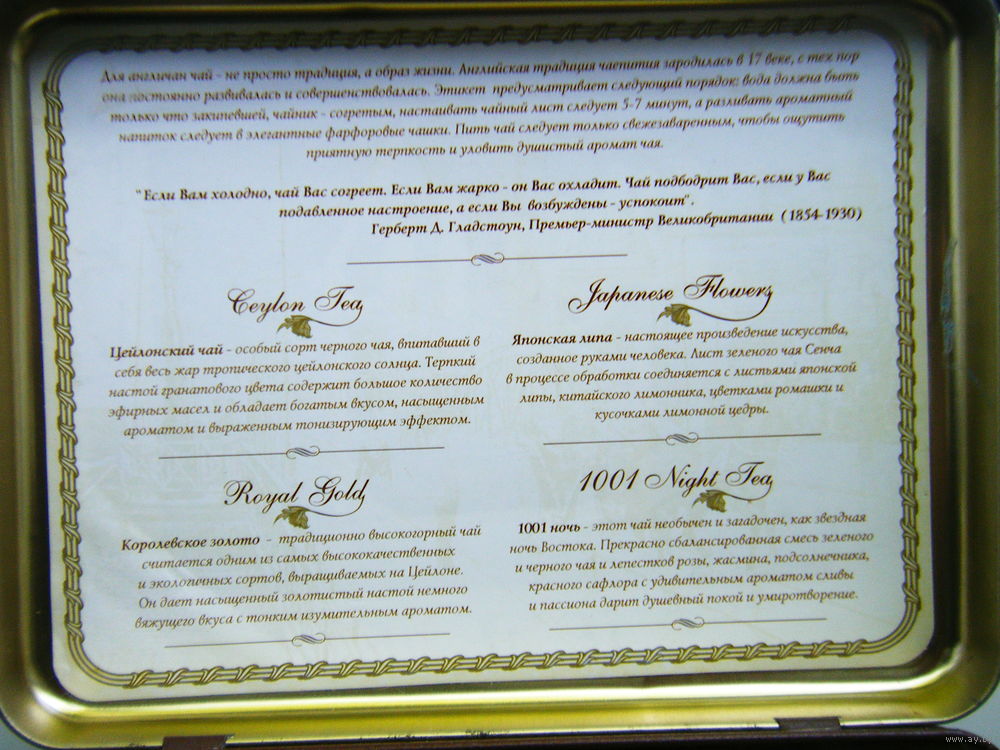 Для англичан чай - не просто традиция, а образ жизни. Английская традиция чаепития зародилась в 17 веке, с тех пор
она постоянно развивалась и совершенствовалась. Этикет предусматривает следующий порядок: вода должна быть
только что закипевшей, чайник - согретым, настаивать чайный лист следует 5-7 минут, а разливать ароматный
напиток следует в элегантные фарфоровые чашки. Пить чай следует только свежезаваренным, чтобы ощутить
приятную терпкость и уловить душистый аромат чая.
"Если Вам холодно, чай Вас согреет. Если Вам жарко - он Вас охладит. Чай подбодрит Вас, если у Вас
подавленное настроение, а если Вы возбуждены - успокоит".
Герберт Д. Гладстоун, Премьер-министр Великобритании (1854-1930)
Ceylon Tea
Цейлонский чай - особый сорт черного чая, впитавший в
себя весь жар тропического цейлонского солнца. Терпкий
настой гранатового цвета содержит большое количество
эфирных масел и обладает богатым вкусом, насыщенным
ароматом и выраженным тонизирующим эффектом.
Japanese Flowers
Японская липа - настоящее произведение искусства,
созданное руками человека. Лист зеленого чая Сенча
в процессе обработки соединяется с листьями японской
липы, китайского лимонника, цветками ромашки и
кусочками лимонной цедры.
Royal Gold
Королевское золото - традиционно высокогорный чай
считается одним из самых высококачественных
и экологичных сортов, выращиваемых на Цейлоне.
Он дает насыщенный золотистый настой немного
вяжущего вкуса с тонким изумительным ароматом.
1001 Night Tea
1001 ночь - этот чай необычен и загадочен, как звездная
ночь Востока. Прекрасно сбалансированная смесь зеленого
и черного чая и лепестков розы, жасмина, подсолнечника,
красного сафлора с удивительным ароматом сливы
и пассиона дарит душевный покой и умиротворение.